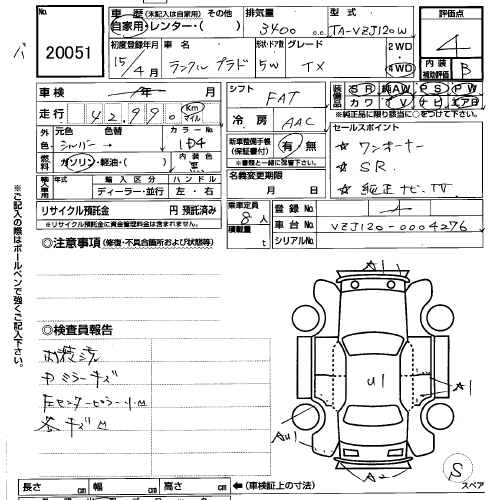 No.
20051
車 歴 (未記入は自家用) その他
自家用・レンター・( )
排気量
3400 c.c.
型式
TA-VZJ120W
評価点
4
内装
補助評価
B
初度登録年月
15/4月
車名
ランクル プラド
形状・ドア数
5W
グレード
TX
2WD
・
4WD
車検 年 月
走行 42,990 Km マイル
シフト
FAT
装備品
SR 純AW PS PW
カワ TV ナビ エアB
※純正品に限り該当に○をつけて下さい。
冷房
AAC
外色
元色 色替
シルバー→
カラーNo.
1D4
燃料
ガソリン・軽油・( )
内装色
黒
新車整備手帳
(保証書付)
有・無
※書類と一緒に後送り。
セールスポイント
☆ ワンオーナー
☆ SR.
☆ 純正ナビ、TV
輸入車用
年式 輸入区分 ハンドル
ディーラー・並行 左・右
名義変更期限
月 日
リサイクル預託金 円 預託済み
※リサイクル預託金に資金管理料金は含まれません。
乗車定員
8人
積載量
t
登録No.
車台No.
VZJ120-0004276
シリアルNo.
◎注意事項 (修復・不具合箇所および状態等)
※ご記入の際はボールペンで強くご記入下さい。
◎検査員報告
内装ヨゴレ
各キズ凹
A1
U1
A1
AU1
A2
S
スペア
長さ cm 幅 cm 高さ cm ←(車検証上の寸法)